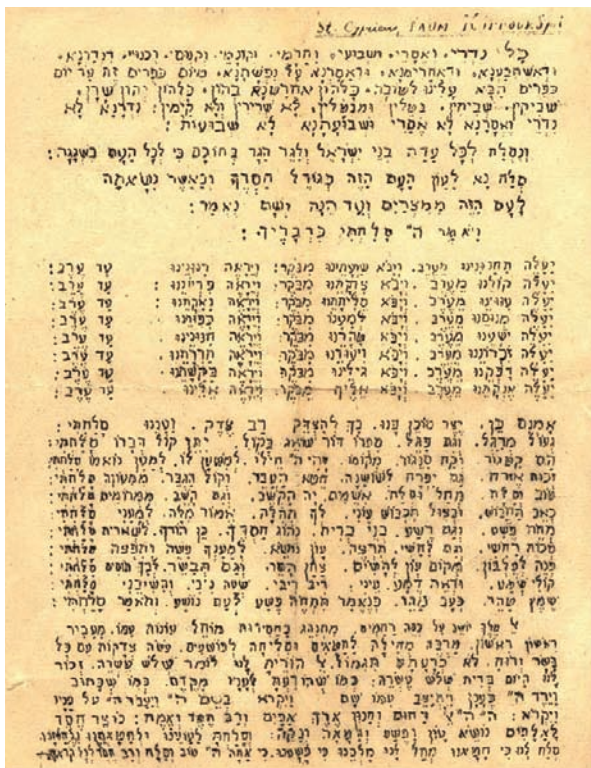 St. Cyprien,
כָל נדרי, ואסרי ושבועי, וחרמי, וקונמי, וקנוסי, וכנויי, דנדרנא,
ודאשתבענא, ודאחרימנא, ודאסרנא על נפשתנא, מיום כפרים זה עד יום
כפרים הבא עלינו לטובה, כלהון אחרטנא בהון, כלהון יהון שרן,
שביקין, שביתין, בטלין ומבטלין, לא שרירין ולא קימין: נדרנא לא
נדרי ואסרנא לא אסרי ושבועתנא לא שבועות:
ונסלח לכל עדת בני ישראל ולגר הגר בתוכם כי לכל העם בשגגה:
סלח נא לעון העם הזה כגודל חסדך וכאשר נשאתה
לעם הזה ממצרים ועד הנה ושם נאמר:
ויאמר ה" סלחתי כדבריך:
יעלה תחנונינו מערב. ויבא שועתינו מבקר: ויראה רנונינו עד ערב:
יעלה קולנו מערב. ויבא צדקתנו מבקר: ויראה פדיונינו: עד ערב:
יעלה ענוינו מערב. ויבא סליחתנו מבקר: ויראה נאקתנו: עד ערב:
יעלה מנוסנו מערב. ויבא למענו מבקר: ויראה כפורנו: עד ערב:
יעלה ישענו מערב. ויבא טהרנו מבקר: ויראה חנוננו: עד ערב:
יעלה זכרוננו מערב. ויבא ויעודנו מבקר: ויראה הדרתנו: עד ערב:
יעלה דפקנו מערב. ויבא גילינו מבקר: ויראה בקשתנו: עד ערב:
יעלה אנקתנו מערב. ויבא אליך מבקר: ויראה אלינו: עד ערב:
אמנם כן. יצר סוכן בנו. בך להצדק רב צדק. ועננו סלחתי:
געול מרגל. וגם פגל. ספרו דוד שואג בקול. יתן קול דברו סלחתי:
הס קטגור. וקח סנגור. מקומו. ויהי ה" חילי. למשען לו. למען נואמו סלחתי:
זכות אזרח. גם יפרח לשושנה. חטא העבר. וקול הגבר. ממעונה סלחתי:
טוב וסלח. מחל וסלח אשמים. יה הקשב. וגם השב. ממרומים סלחתי:
כאב תחבוש. ובצול תכבוש עוני. לך תהלה. אמור מלה. למעני סלחתי:
מחה פשע. וגם רשע. בני ברית. נהוג חסדך. כן הודך. לשארית סלחתי:
סכות רחשי. וגם לחשי. תרצה. עון נושא. למענך עשה ותפצה סלחתי:
פנה לעלבון. מקום עון להשים. צחן הסר. וגם תבשר. לבך חוסים סלחתי:
קולי שמע. וראה דמע. עיני. ריב ריבי. שעה ניבי. והשיבני סלחתי:
שמץ טהר. כעב נמהר. כנאמר תמחה פשע לעם נושע. ותאמר סלחתי:
מלך יושב על כסא רחמים. מתנהג בחסידות מוחל עונות עמו. מעביר
ראשון ראשון. מרבה מחילה לחטאים וסליחה לפושעים. עשה צדקות עם כל
בשר ורוח. לא כרעתם תגמול. הורית לנו לומר שלש עשרה. זכור
לנו היום ברית שלש עשרה: כמו שהודעת לענו מקדם. כמו שכתוב
וירד ה" בענן ויתיצב עמו שם ויקרא בשם ה" ויעבר ה" על פניו
ויקרא: ה" ה" רחום וחנון ארך אפים ורב חסד ואמת: נוצר חסד
לאלפים נושא עון ופשע וחטאה ונקה: וסלחת לעוננו ולחטאתנו ונחלתנו.
סלח לנו כי חטאנו מחל לנו מלכנו כי פשענו. כי אתה ה" טוב וסלח ורב חסד לכל קראיך.